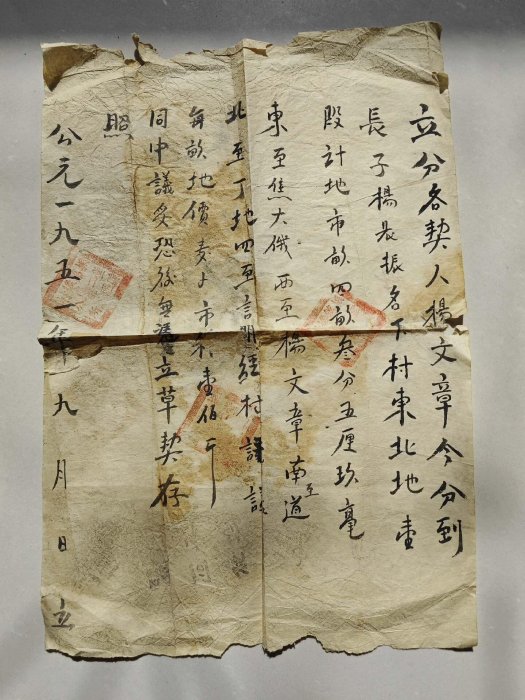 立分各契人楊文章今分到
長子楊長振名下村東北地壹
段計地市畝四畝叁分五厘玖毫
東至焦大俄西至楊文章南至道
北至丁地四至言明經村證
每畝地價麦子市米壹佰斤
同中議交恐後無憑立草契存
照
公元一九五一年九月 日 立